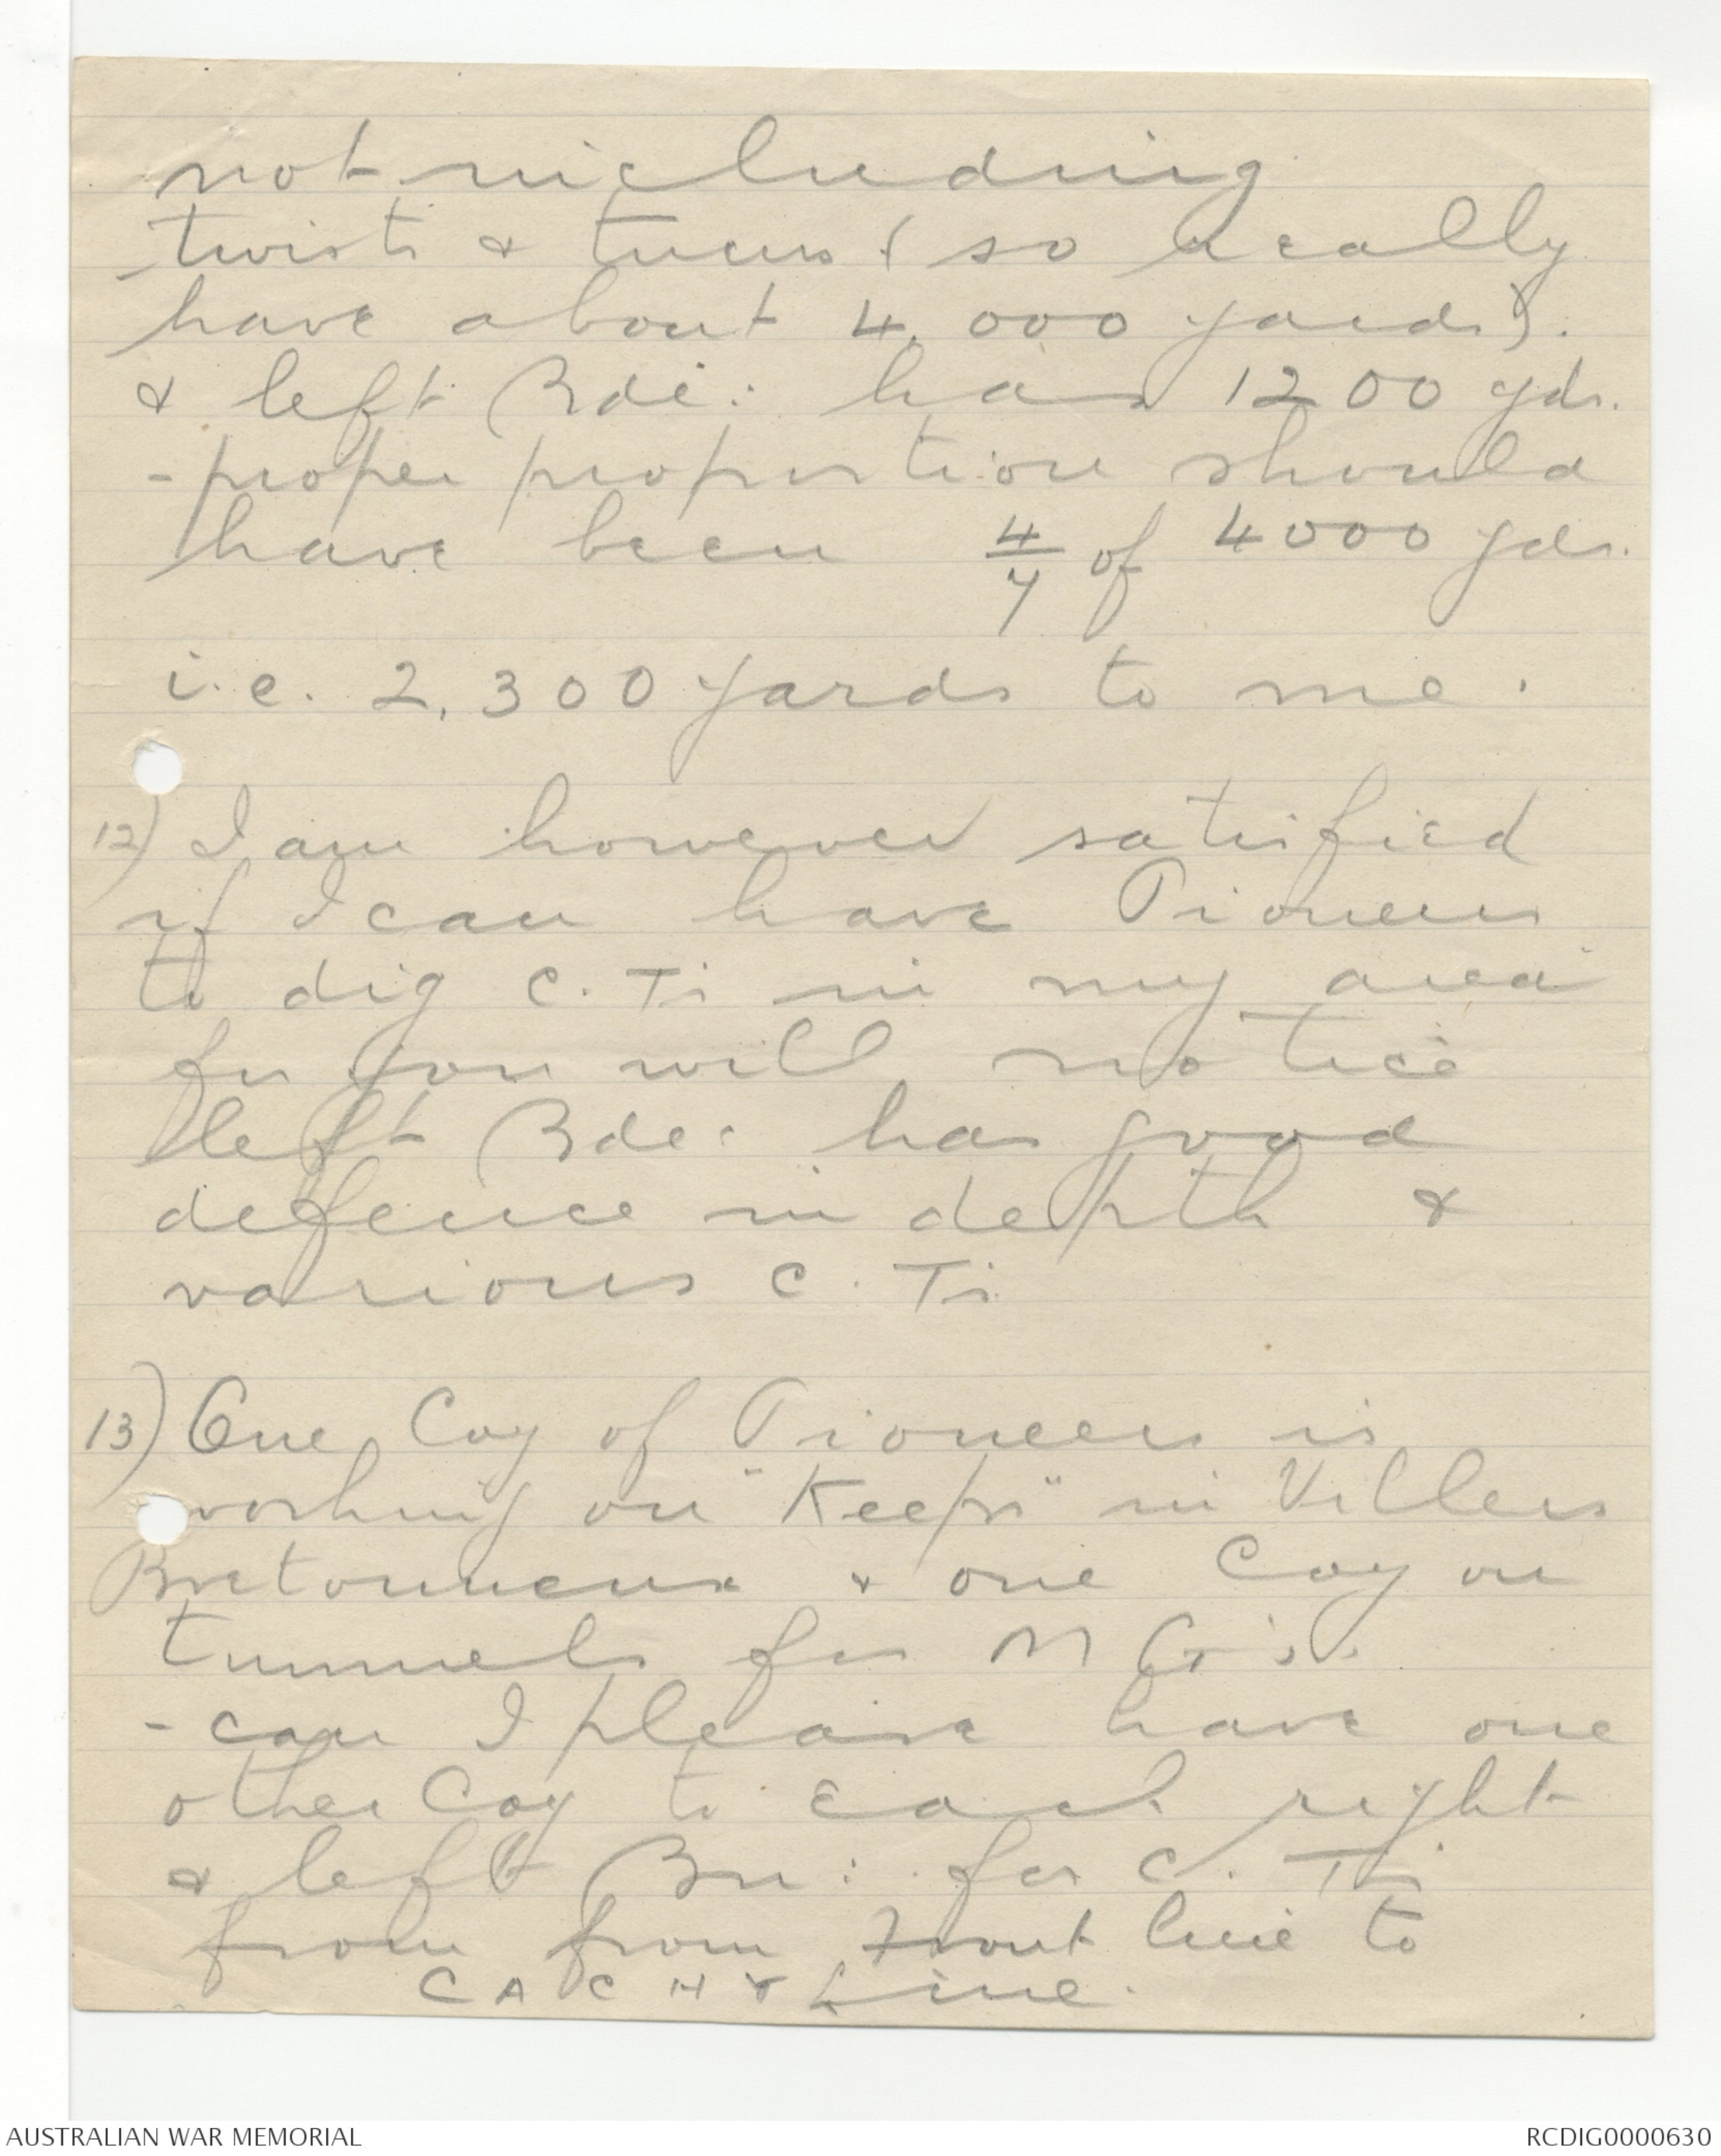 not including
twists & turns (so really
have about 4,000 yards).
& left Bde: has 1200 yds.
- proper proportion should
have been 4/7 of 4000 yds.
i.e. 2,300 yards to me.
12) I am however satisfied
if I can have Pioneers
to dig C.Ts in my area
for you will notice
left Bde: has good
defence in depth &
various C.Ts
13) One Coy of Pioneers is
working on "Keeps" in Villers
Bretonneux & one Coy on
tunnels for M G's.
- can I please have one
other Coy to each right
& left Bn: for C.Ts
from from Front line to
CACHY Line.
AUSTRALIAN WAR MEMORIAL
RCDIG0000630